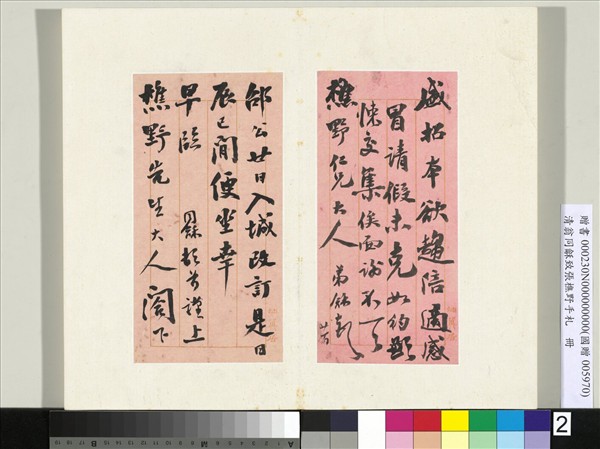 盛招本欲趨陪適感
冒請假未克如約慙
悚交集俟面謝不一
樵野仁兄大人 弟龢頓 廿一日
邵公廿日入城改訂是日
辰巳間便坐幸
早臨 同龢頓首謹上
樵野先生大人閣下
贈書 000230N000000000(國贈 005970)
清翁同龢致張樵野手札 冊
2